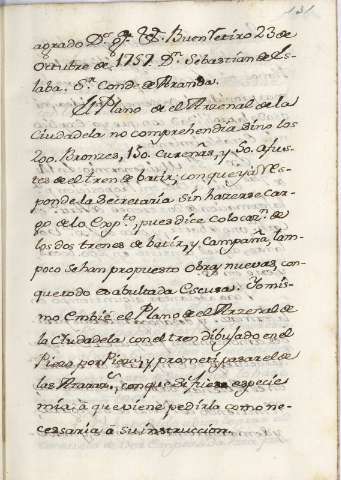 131
agrado Dˢ. gᵉ. á V.E. Buen Retiro 23 de
Octubre de 1757. Dⁿ. Sebastian de Es-
laba. Sᵒʳ. Conde de Aranda.
El Plano de el Arzenal de la
Ciudadela no comprehendia sino los
200. Bronzes, 150. Cureñas, y 50. afus-
tes de el tren de batir; con que ya Res-
ponde la Secretaria sin hazerse Car-
go de lo Expᵗᵒ, pues dice Colocazⁿ. de
los dos trenes de batir, y Campaña, tam-
poco se han propuesto obras nuevas, con
que todo es abultada Escusa. Yo mis-
mo Embié el Plano de el Arzenal de
la Ciudadela con el tren dibujado en el
Pieza por Pieza, y prometí pasar el de
las Ataraz, con que Si hizo especie
mia, á que viene pedirla como ne-
cessaria á su instruccion.